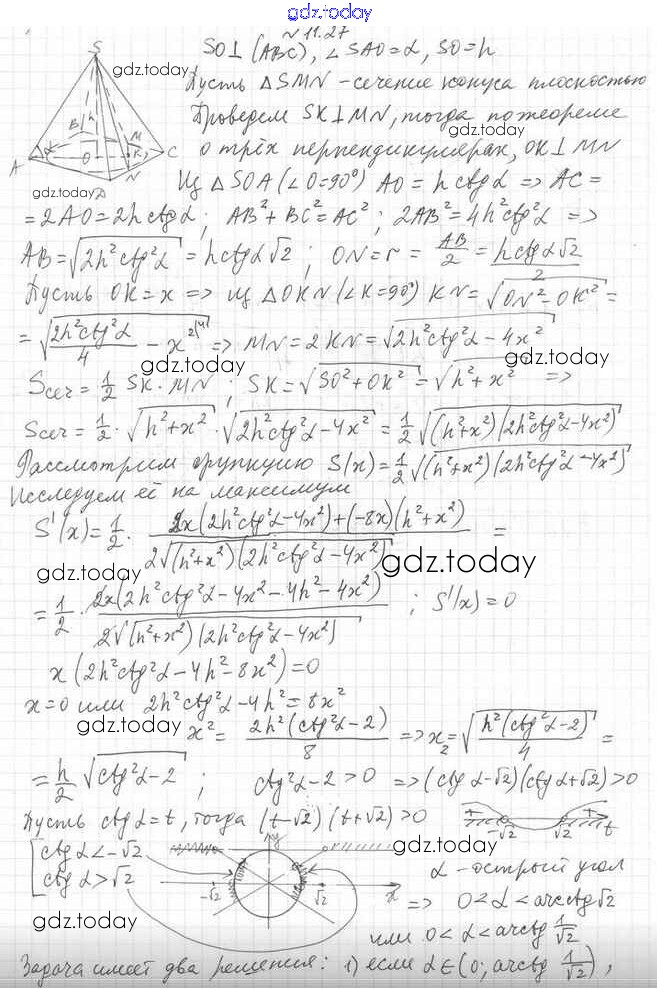 gdz.today
№ 11.27
SO⊥(ABC), ∠SAO=α, SO=h
gdz.today
Пусть △SMN - сечение конуса плоскостью
Проведем SK⊥MN, тогда по теореме
gdz.today
о трёх перпендикулярах, OK⊥MN
S
B
h
M
A
α
O
K
C
N
D
gdz.today
Из △SOA (∠O=90°) AO = h ctg α => AC =
= 2AO = 2h ctg α ; AB²+BC²=AC² ; 2AB²=4h²ctg²α =>
AB=√(2h²ctg²α) = h ctg α √2 ; ON=r = AB/2 = h ctg α √2/2
Пусть OK=x => из △OKN (∠K=90°) KN=√(ON²-OK²) =
= √(2h²ctg²α/4 - x²) => MN=2KN=√(2h²ctg²α-4x²)
gdz.today gdz.today
Sсеч = 1/2 SK·MN ; SK=√(SO²+OK²) = √(h²+x²) =>
Sсеч = 1/2 · √(h²+x²) · √(2h²ctg²α-4x²) = 1/2 √((h²+x²)(2h²ctg²α-4x²))
Рассмотрим функцию S(x)=1/2 √((h²+x²)(2h²ctg²α-4x²))
Исследуем её на максимум
S'(x)=1/2 · (2x(2h²ctg²α-4x²)+(-8x)(h²+x²))/(2√((h²+x²)(2h²ctg²α-4x²))) =
gdz.today gdz.today
= 1/2 · 2x(2h²ctg²α-4x²-4h²-4x²)/(2√((h²+x²)(2h²ctg²α-4x²))) ; S'(x)=0
x(2h²ctg²α-4h²-8x²)=0
x=0 или 2h²ctg²α-4h²=8x²
gdz.today
x² = 2h²(ctg²α-2)/8 => x₂=√(h²(ctg²α-2)/4) =
= h/2 √(ctg²α-2) ; ctg²α-2>0 => (ctg α-√2)(ctg α+√2)>0
Пусть ctg α=t, тогда (t-√2)(t+√2)>0
+ - + -√2 √2 t
[ctg α<-√2
ctg α>√2
y
-√2 √2 x
gdz.today
α - острый угол
=> 0<α<arcctg√2
gdz.today
или 0<α<arctg 1/√2
Задача имеет два решения: 1) если α∈(0; arctg 1/√2),
gdz.today